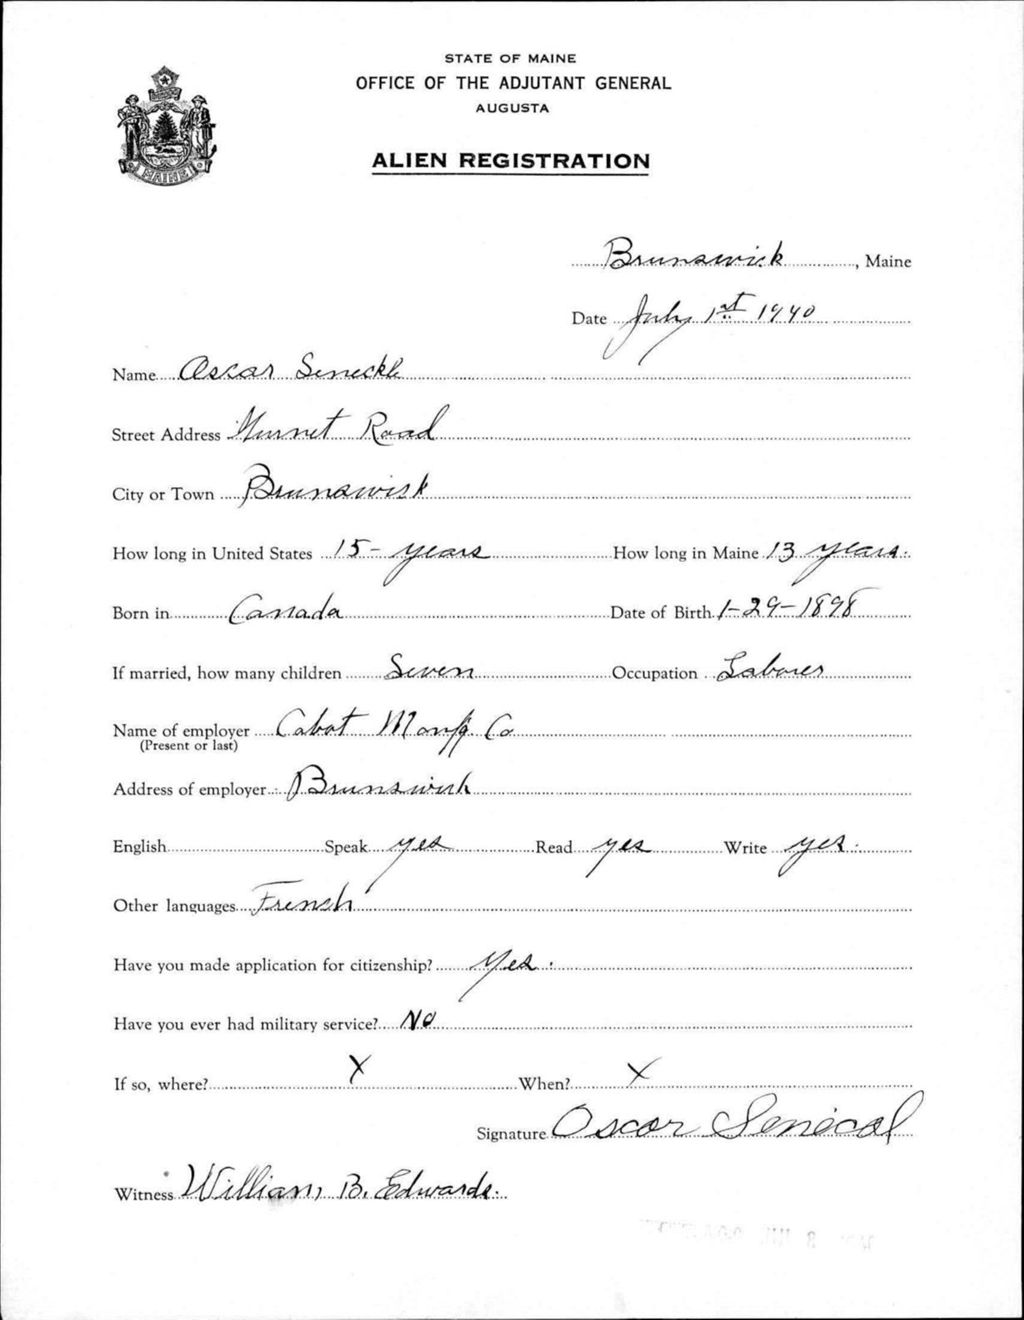 STATE OF MAINE
OFFICE OF THE ADJUTANT GENERAL
AUGUSTA
ALIEN REGISTRATION
MAINE
Brunswick, Maine
Date July 1st 1940
Name Oscar Seneckle
Street Address Gurnet Road
City or Town Brunswick
How long in United States 15 - years How long in Maine 13 years.
Born in Canada Date of Birth 1-29-1898
If married, how many children Seven Occupation Laborer
Name of employer Cabot Manfg Co
(Present or last)
Address of employer Brunswick
English Speak yes Read yes Write yes.
Other languages French
Have you made application for citizenship? Yes.
Have you ever had military service? No
If so, where? X When? X
Signature Oscar Senécal
Witness William B. Edwards.